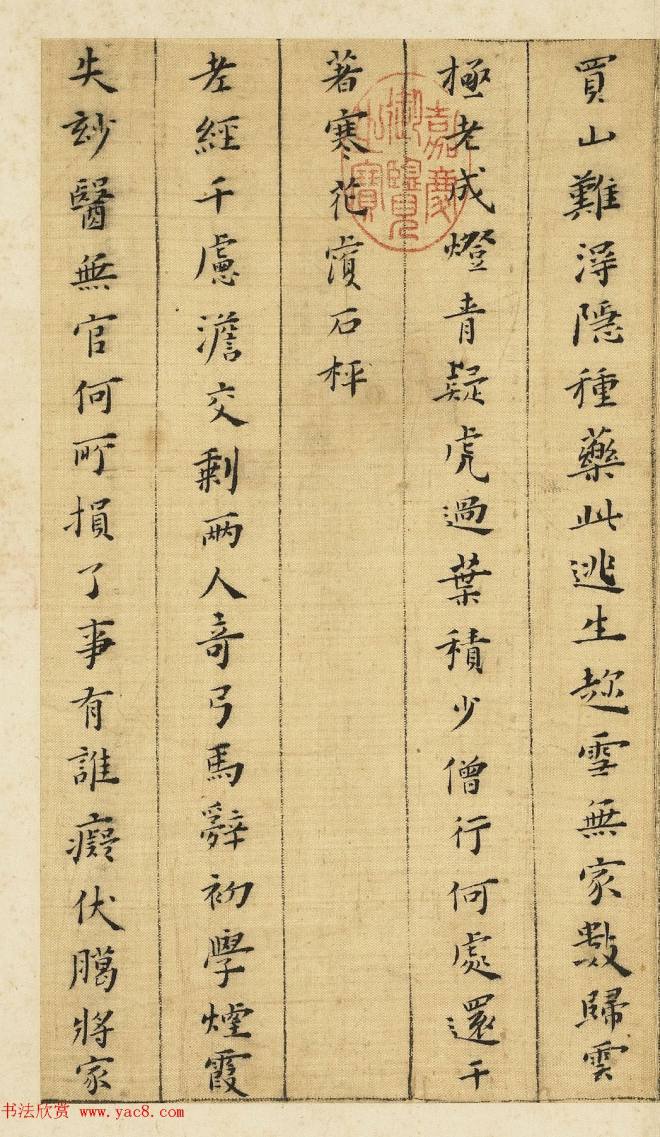 買山難淂隱種藥此逃生趂雪無家數歸雲
極老成燈青疑虎過葉積少僧行何處還千
著寒花石枰
老經千慮澹交剩兩人奇弓馬辭初學煙霞
失玅醫無官何所損了事有誰癡伏臈將家
嘉慶御覽之寶
书法欣赏 www.yac8.com